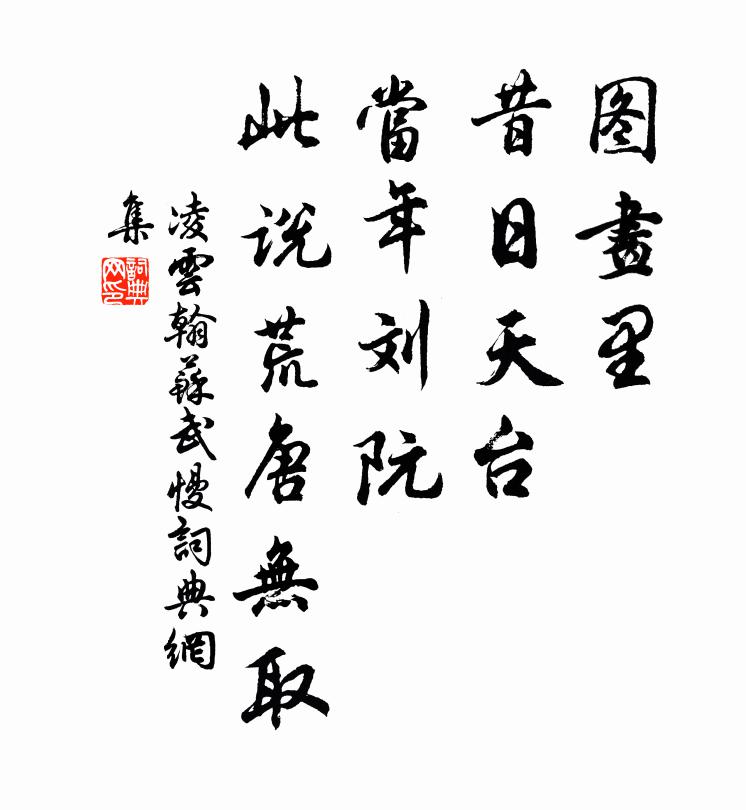 图畫里
昔日天台
當年刘阮
此说荒唐無取
凌雲翰蘇武慢詞典網
集
詞典
网印